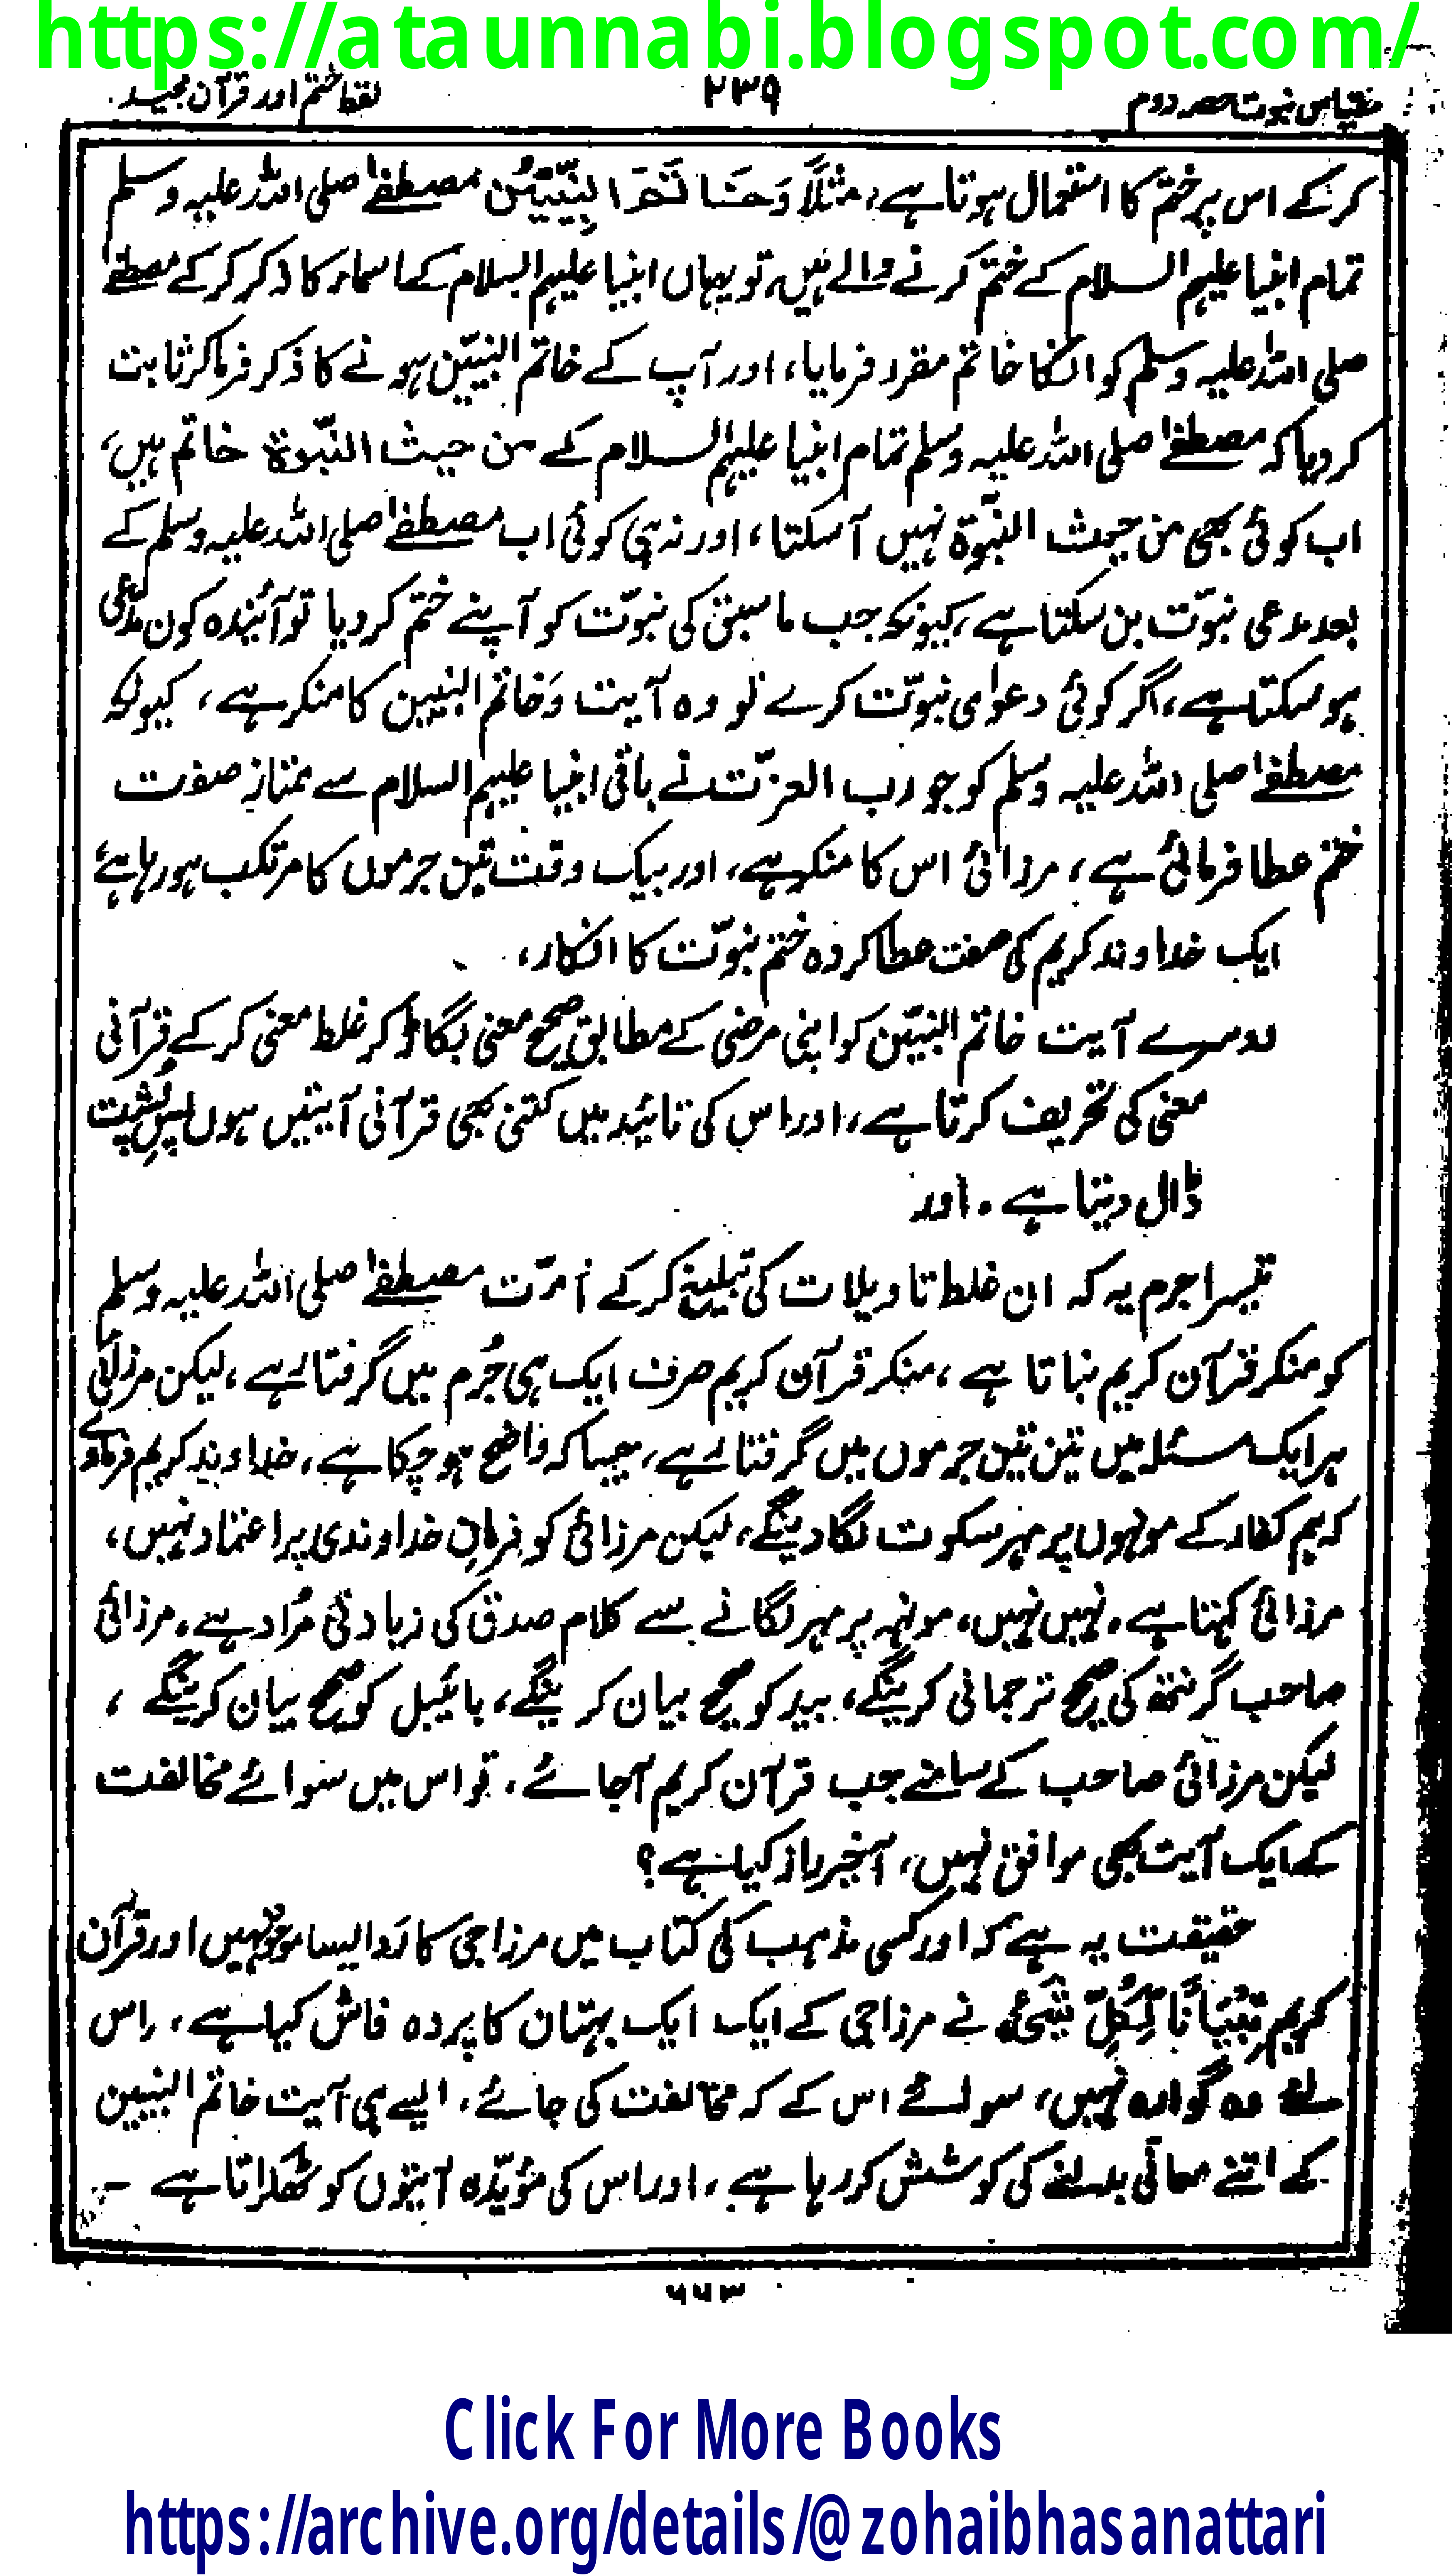 https://ataunnabi.blogspot.com/
مقیاس نبوت حصہ دوم
۲۳۹
لفظ ختم اور قرآن مجید
کر کے اس پر ختم کا استعمال ہوتا ہے، مثلاً وَخَاتَمَ النَّبِيِّيْنَ مصطفےٰ صلی اللہ علیہ وسلم
تمام انبیا علیہم السلام کے ختم کرنے والے ہیں، تو یہاں انبیا علیہم السلام کے اسماء کا ذکر کر کے مصطفےٰ
صلی اللہ علیہ وسلم کو انکا خاتم مقرر فرمایا، اور آپ کے خاتم النبیّن ہونے کا ذکر فرما کر ثابت
کر دیا کہ مصطفےٰ صلی اللہ علیہ وسلم تمام انبیا علیہم السلام کے من حیث النبّوۃ خاتم ہیں،
اب کوئی بھی من حیث النبّوۃ نہیں آ سکتا، اور نہ ہی کوئی اب مصطفےٰ صلی اللہ علیہ وسلم کے
بعد مدعی نبوّت بن سکتا ہے، کیونکہ جب ما سبق کی نبوّت کو آپنے ختم کر دیا تو آئندہ کون مدعی
ہو سکتا ہے، اگر کوئی دعوٰی نبوّت کرے تو وہ آیت وَخاتم النبیین کا منکر ہے، کیونکہ
مصطفےٰ صلی اللہ علیہ وسلم کو جو رب العزّت نے باقی انبیا علیہم السلام سے ممتاز صفت
ختم عطا فرمائی ہے، مرزائی اس کا منکر ہے، اور بیک وقت تین جرموں کا مرتکب ہو رہا ہے
ایک خداوند کریم کی صفت عطا کردہ ختم نبوّت کا انکار،
دوسرے آیت خاتم النبیّن کو اپنی مرضی کے مطابق صحیح معنی بگاڑ کر غلط معنی کر کے قرآنی
معنی کی تحریف کرتا ہے، اور اس کی تائید میں کتنی بھی قرآنی آیتیں ہوں پسِ پُشت
ڈال دیتا ہے۔ اور
تیسرا جرم یہ کہ ان غلط تاویلات کی تبلیغ کر کے اُمّت مصطفےٰ صلی اللہ علیہ وسلم
کو منکر قرآن کریم بناتا ہے، منکر قرآن کریم صرف ایک ہی جُرم میں گرفتار ہے، لیکن مرزائی
ہر ایک مسئلہ میں تین تین جرموں میں گرفتار ہے، جیسا کہ واضح ہو چکا ہے، خداوند کریم فرماوے
کہ ہم کفار کے مونہوں پر مہر سکوت لگا دینگے، لیکن مرزائی کو فرمانِ خداوندی پر اعتماد نہیں،
مرزائی کہتا ہے۔ نہیں نہیں، مونہہ پر مہر لگانے سے کلام صدق کی زیادتی مُراد ہے، مرزائی
صاحب گرنتھ کی صحیح ترجمانی کرینگے، بید کو صحیح بیان کرینگے، بائیبل کو صحیح بیان کرینگے،
لیکن مرزائی صاحب کے سامنے جب قرآن کریم آجائے، تو اس میں سوائے مخالفت
کے ایک آیت بھی موافق نہیں، آخر راز کیا ہے؟
حقیقت یہ ہے کہ اور کسی مذہب کی کتاب میں مرزا جی کا رَد ایسا موجود نہیں اور قرآن
کریم تِبْيَانًا لِّكُلِّ شَيْءٍ نے مرزا جی کے ایک ایک بہتان کا پردہ فاش کیا ہے، اس
لئے وہ گوارہ نہیں، سوائے اس کے کہ مخالفت کی جائے، ایسے ہی آیت خاتم النبیین
کے اتنے معانی بدلنے کی کوشش کر رہا ہے، اور اس کی مؤیّدہ آیتوں کو ٹھکراتا ہے -
۶۶۳
Click For More Books
https://archive.org/details/@zohaibhasanattari